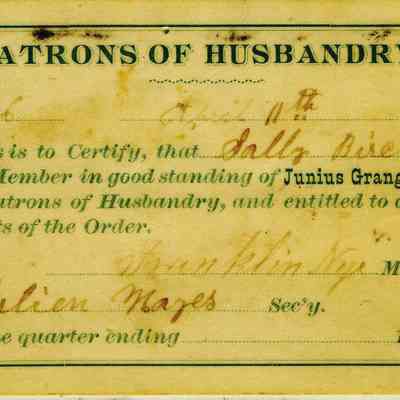 ATRONS OF HUSBANDRY
6 April 11th
s is to Certify, that Sally Birc
Member in good standing of Junius Grang
atrons of Husbandry, and entitled to a
ts of the Order.
Franklin Nye M
Mayes Sec'y.
e quarter ending 1